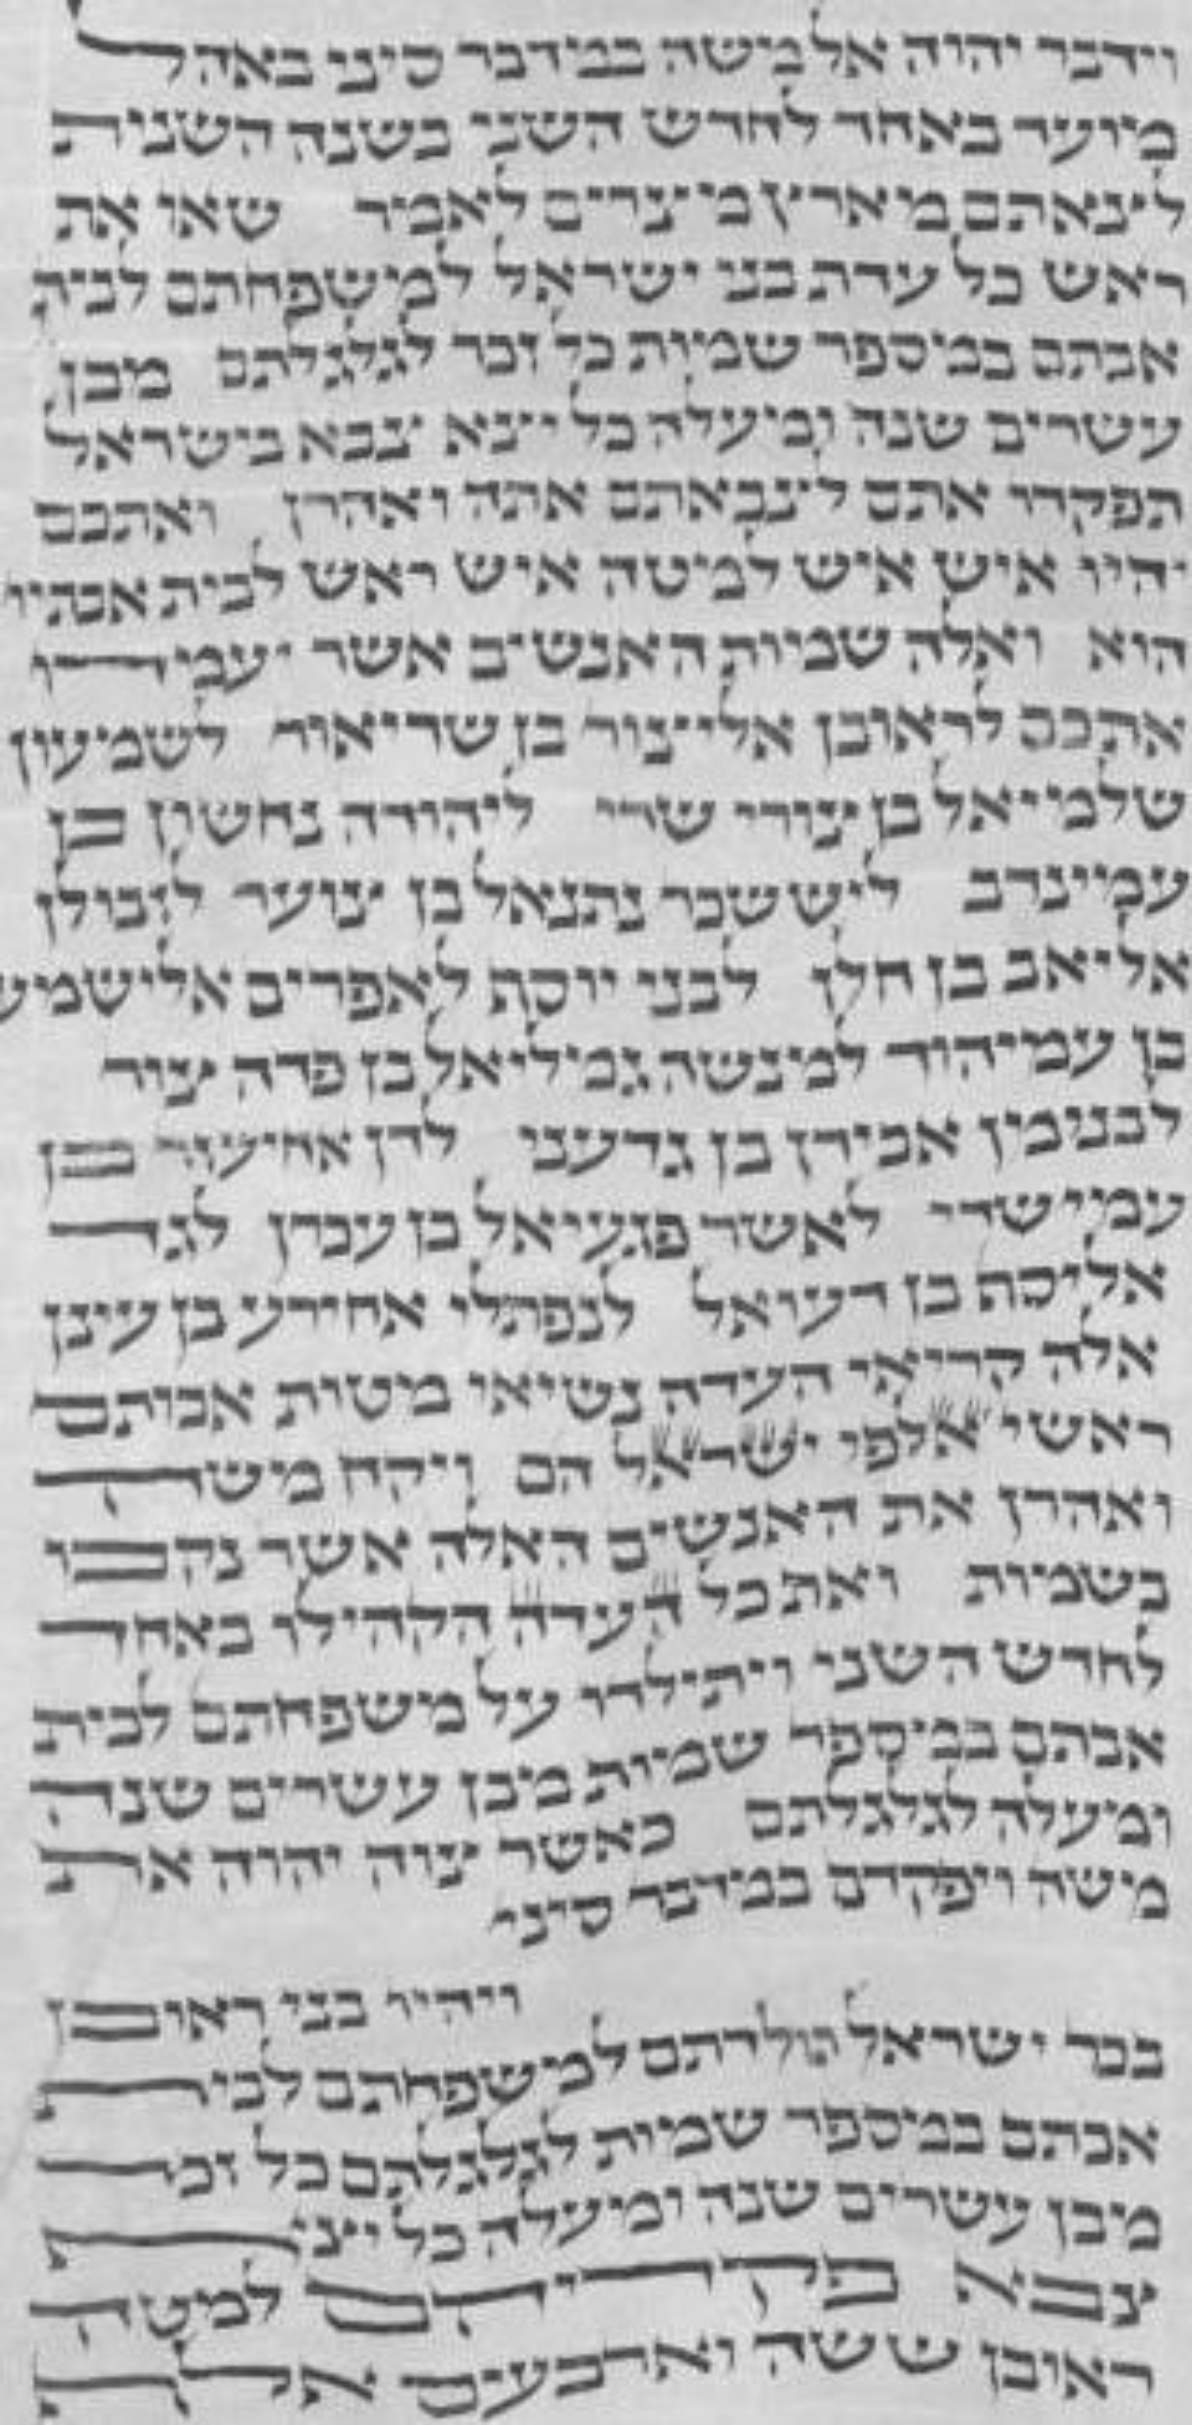 וידבר יהוה אל משה במדבר סיני באהל
מועד באחד לחדש השני בשנה השנית
לצאתם מארץ מצרים לאמר שאו את
ראש כל עדת בני ישראל למשפחתם לבית
אבתם במספר שמות כל זכר לגלגלתם מבן
עשרים שנה ומעלה כל יצא צבא בישראל
תפקדו אתם לצבאתם אתה ואהרן ואתכם
יהיו איש איש למטה איש ראש לבית אבתיו
הוא ואלה שמות האנשים אשר יעמדו
אתכם לראובן אליצור בן שדיאור לשמעון
שלמיאל בן צורי שדי ליהודה נחשון בן
עמינדב ליששכר נתנאל בן צוער לזבולן
אליאב בן חלן לבני יוסף לאפרים אלישמע
בן עמיהוד למנשה גמליאל בן פדה צור
לבנימין אבידן בן גדעני לדן אחיעזר בן
עמישדי לאשר פגעיאל בן עכרן לגד
אליסף בן דעואל לנפתלי אחירע בן עינן
אלה קריאי העדה נשיאי מטות אבותם
ראשי אלפי ישראל הם ויקח משה
ואהרן את האנשים האלה אשר נקבו
בשמות ואת כל העדה הקהילו באחד
לחדש השני ויתילדו על משפחתם לבית
אבתם במספר שמות מבן עשרים שנה
ומעלה לגלגלתם כאשר צוה יהוה את
משה ויפקדם במדבר סיני
ויהיו בני ראובן
בכר ישראל תולדתם למשפחתם לבית
אבתם במספר שמות לגלגלתם כל זכר
מבן עשרים שנה ומעלה כל יצא
צבא פקדיהם למטה
ראובן ששה וארבעים אלף